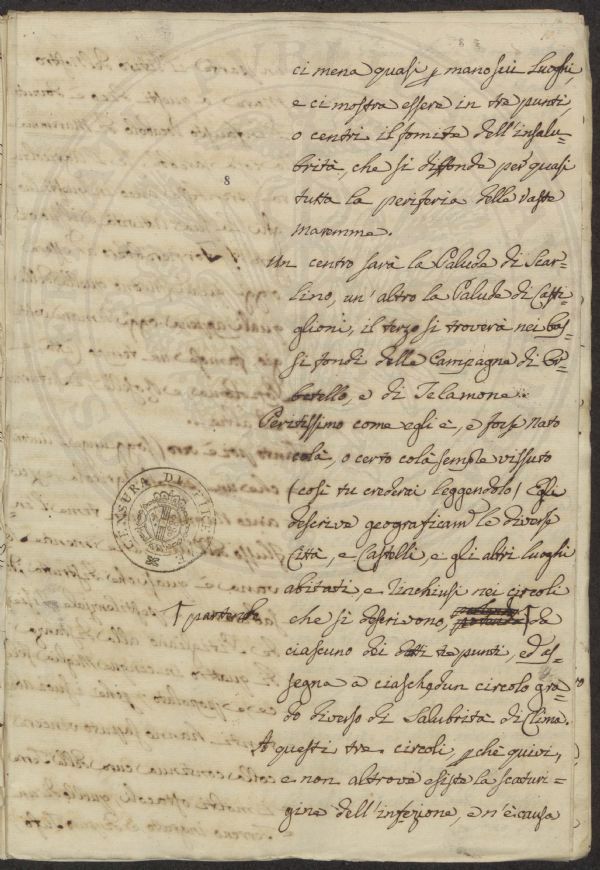 8
ci mena quasi p mano sui Luoghi,
e ci mostra essere in tre punti,
o centri il fomite dell'insalu=
brità, che si diffonde per quasi
tutta la periferia delle vaste
maremme.
Un centro sarà la Palude di Scar=
lino, un'altro la Palude di Casti=
glioni, il terzo si troverà nei bas=
si fondi delle Campagne di Or=
betello, e di Telamone.
Peritissimo come egli è, e forse nato
colà, o certo colà sempre vissuto
(così tu crederei leggendolo) Egli
descrive geograficam.e le diverse
Città, e Castelli, e gli altri Luoghi
abitati, e Inchiusi nei circoli
che si descrivono, da
partendo
ciascuno dei detti tre punti, ed as=
segna a ciaschedun circolo gra=
do diverso di Salubrità di Clima.
A questi tre circoli, pchè quivi,
e non altrove esiste la scaturi=
gine dell'infezione, e n'è causa
CENSURA DI